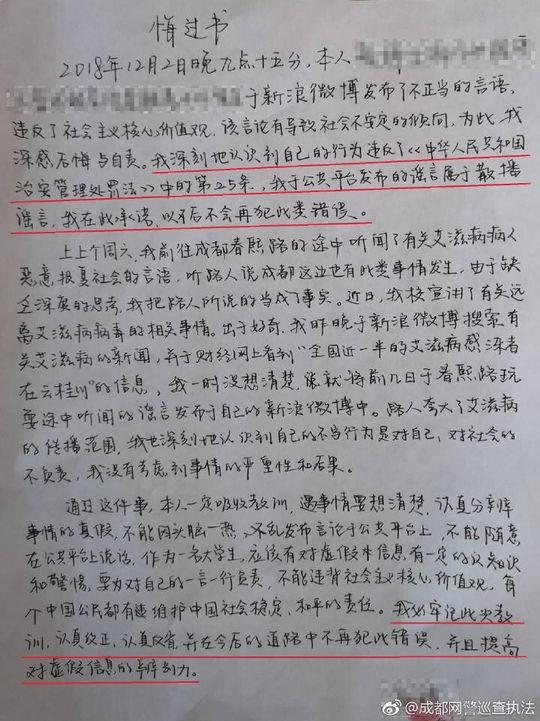 悔过书
2018年12月2日晚九点十五分，本人
于新浪微博发布了不正当的言语，
违反了社会主义核心价值观，该言论有导致社会不安定的倾向，为此，我
深感后悔与自责。我深刻地认识到自己的行为违反了《中华人民共和国
治安管理处罚法》中的第25条，我于公共平台发布的谣言属于散播
谣言，我在此承诺，以后不会再犯此类错误。
上上个周六，我前往成都春熙路的途中听闻了有关艾滋病病人
恶意报复社会的言语，听路人说成都这边也有此类事情发生，由于缺
乏深度的思考，我把路人所说的当成了事实。近日，我校宣讲了有关远
离艾滋病病毒的相关事情。出于好奇，我昨晚于新浪微博搜索有
关艾滋病的新闻，并于财经网上看到“全国近一半的艾滋病感染者
在云桂川”的信息，我一时没想清楚，就将前几日于春熙路玩
耍途中听闻的谣言发布于自己的新浪微博中。路人夸大了艾滋病
的传播范围，我也深刻地认识到自己的不当行为是对自己、对社会的
不负责，我没有考虑到事情的严重性和后果。
通过这件事，本人一定吸收教训，遇事情要想清楚，认真分辨
事情的真假，不能因头脑一热、不乱发布言论于公共平台上，不能随意
在公共平台上说话，作为一名大学生，应该有对虚假信息有一定的认知识
和警惕，要为对自己的一言一行负责，不能违背社会主义核心价值观，每
个中国公民都有着维护中国社会稳定、和平的责任。我必牢记此次教
训，认真改正、认真反省，并在今后的道路中不再犯此错误，并且提高
对虚假信息的辨别力。
@成都网警巡查执法